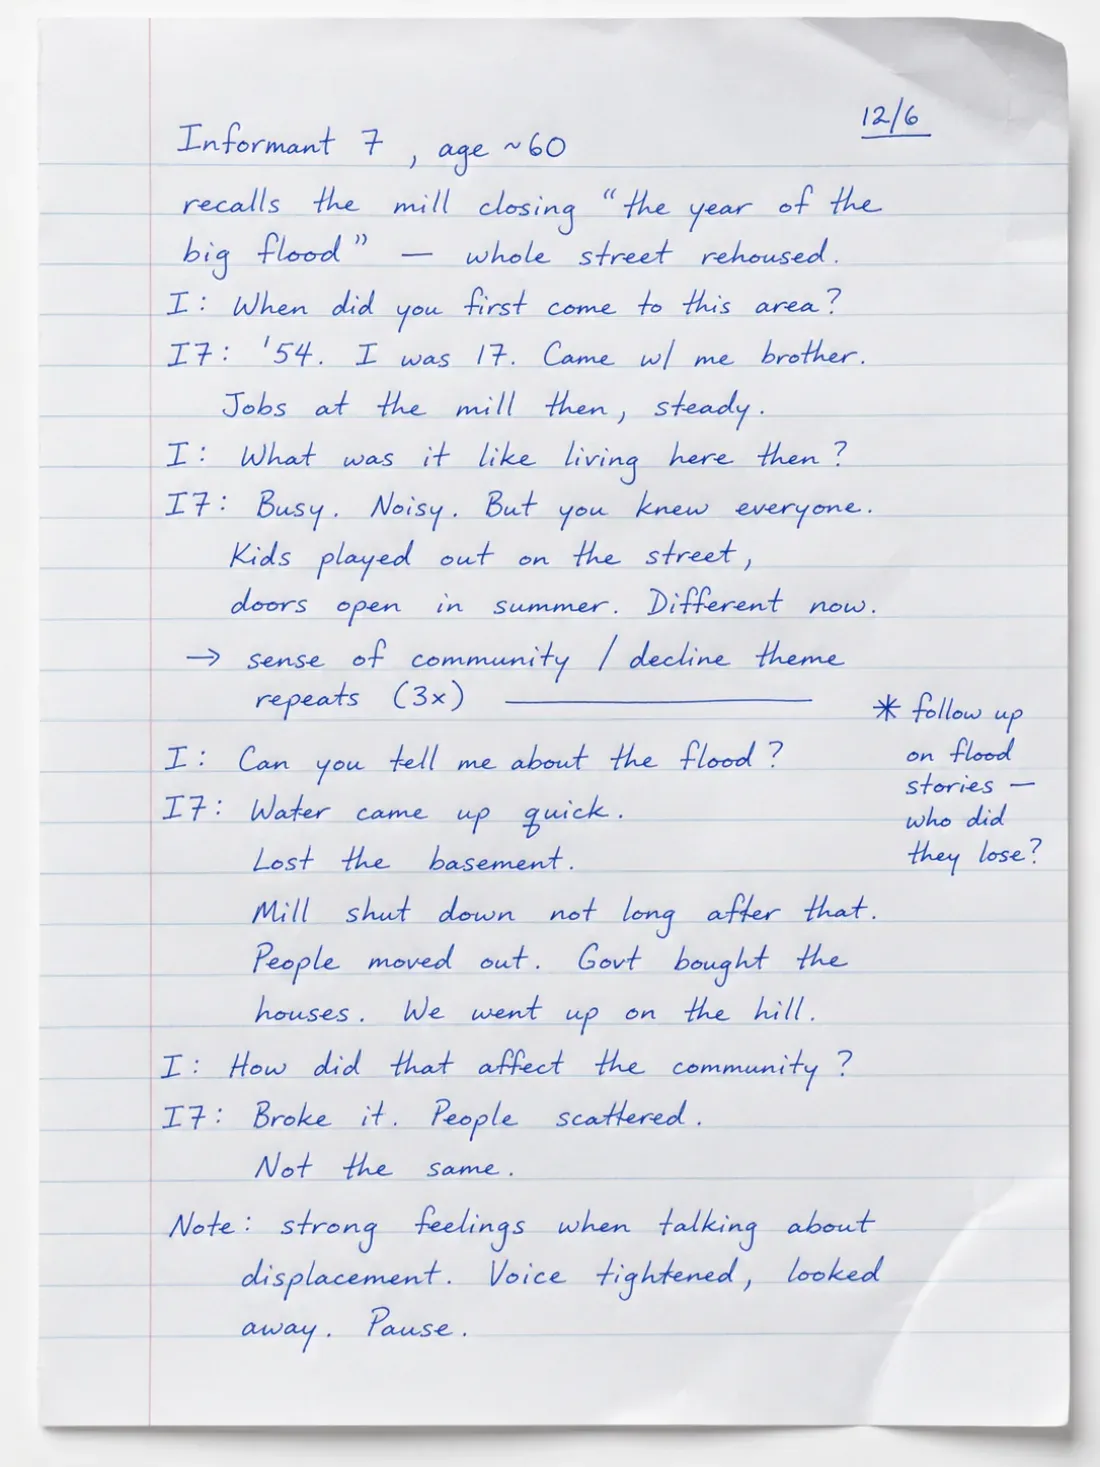 12/6
Informant 7, age ~60
recalls the mill closing "the year of the
big flood" — whole street rehoused.
I: When did you first come to this area?
I7: '54. I was 17. Came w/ me brother.
Jobs at the mill then, steady.
I: What was it like living here then?
I7: Busy. Noisy. But you knew everyone.
Kids played out on the street,
doors open in summer. Different now.
→ sense of community / decline theme
repeats (3x) —
* follow up
on flood
stories —
who did
they lose?
I: Can you tell me about the flood?
I7: Water came up quick.
Lost the basement.
Mill shut down not long after that.
People moved out. Govt bought the
houses. We went up on the hill.
I: How did that affect the community?
I7: Broke it. People scattered.
Not the same.
Note: strong feelings when talking about
displacement. Voice tightened, looked
away. Pause.